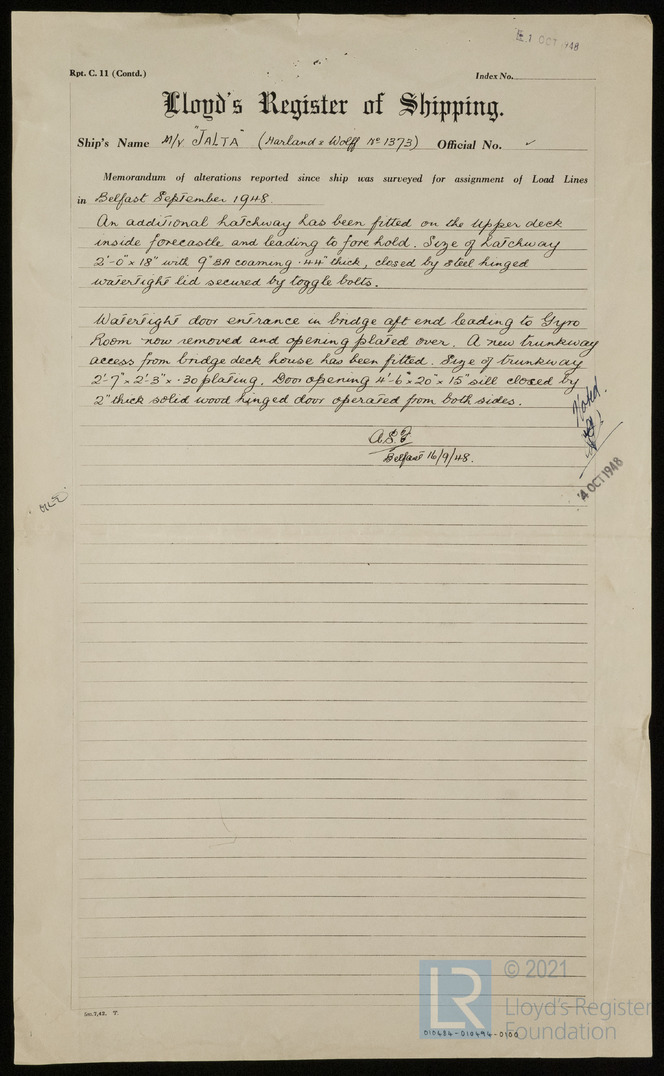 1 OCT 1948
Rpt. C. 11 (Contd.)
Index No.
Lloyd's Register of Shipping.
Ship's Name M/V "JALTA" (Harland & Wolff No 1373) Official No. ✓
Memorandum of alterations reported since ship was surveyed for assignment of Load Lines
in Belfast September 1948.
An additional hatchway has been fitted on the upper deck
inside forecastle and leading to fore hold. Size of hatchway
2'-0" x 18" with 9" BA coaming .44" thick, closed by steel hinged
watertight lid secured by toggle bolts.
Watertight door entrance in bridge aft end leading to Gyro
Room now removed and opening plated over. A new trunkway
access from bridge deck house has been fitted. Size of trunkway
2'-7" x 2'-3" x .30 plating. Door opening 4'-6" x 20" x 15" sill closed by
2" thick solid wood hinged door operated from both sides.
Noted.
Belfast 16/9/48.
4 OCT 1948
5m.7,42. T.
LR
© 2021
Lloyd's Register
Foundation
010484-010494-0100